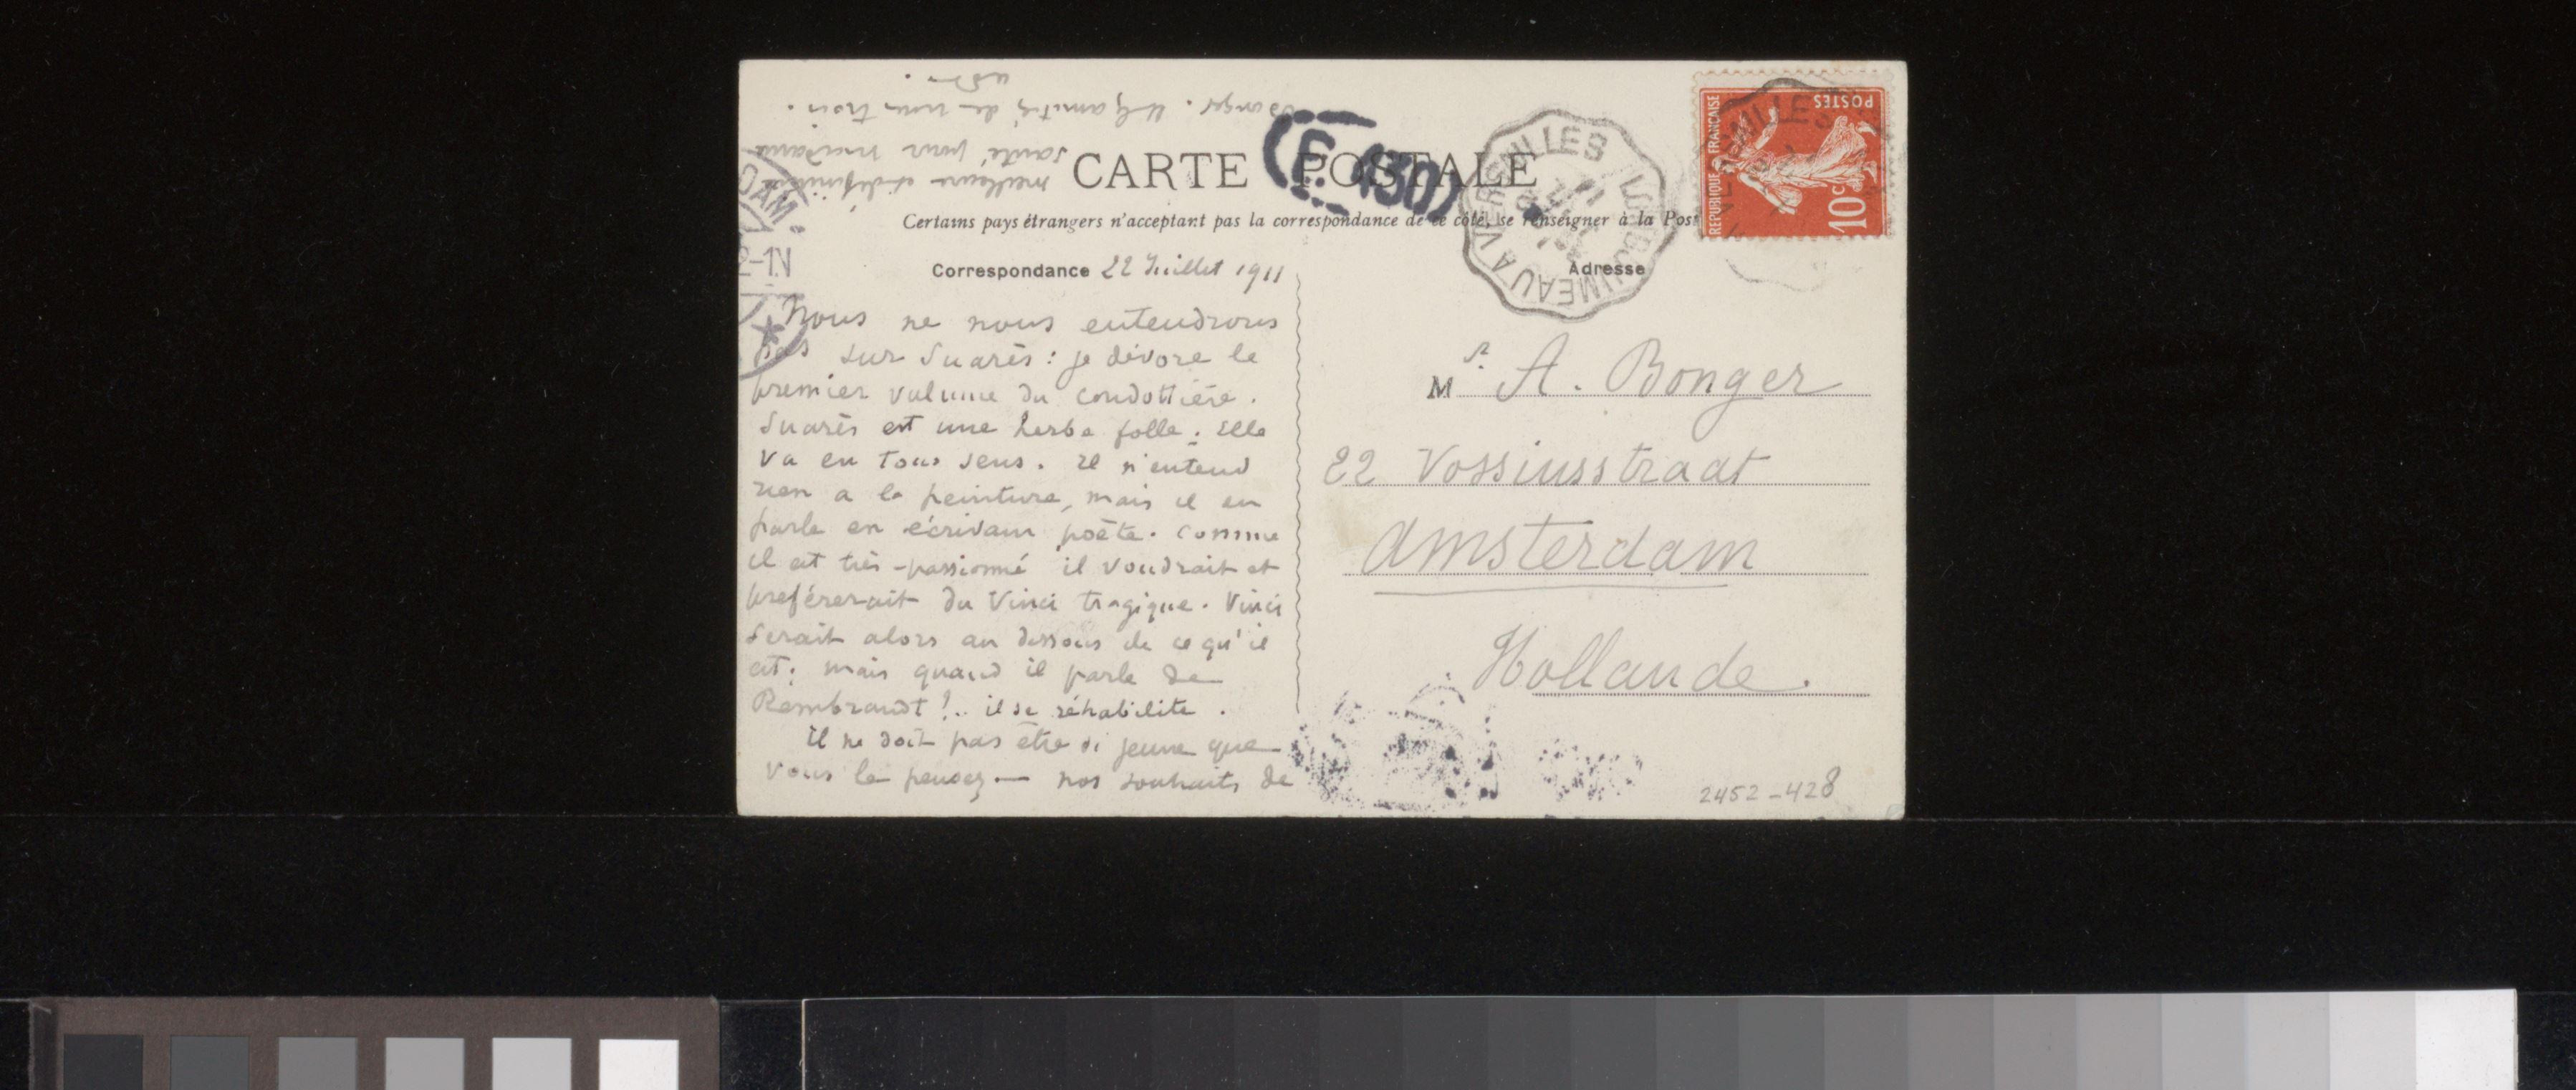 CARTE POSTALE
Certains pays étrangers n'acceptant pas la correspondance de ce côté, se renseigner à la Post
Correspondance 22 Juillet 1911
Nous ne nous entendrons
pas sur Suarès : je dévore le
premier volume du condottière.
Suarès est une herbe folle. Elle
va en tous sens. Il n'entend
rien a la peinture, mais il en
parle en écrivain poète. Comme
il est très-passionné il voudrait et
preférerait du Vinci tragique. Vinci
serait alors au dessous de ce qu'il
est; mais quand il parle de
Rembrandt !.. il se réhabilite.
Il ne doit pas être si jeune que
vous le pensez — nos souhaits de
meilleure et définitive
santé pour madame
Bonger. amitiés de nous trois.
Adresse
Mr. A. Bonger
22 Vossiusstraat
Amsterdam
Hollande.
2452-428
RÉPUBLIQUE FRANÇAISE
POSTES
10c
VERSAILLES